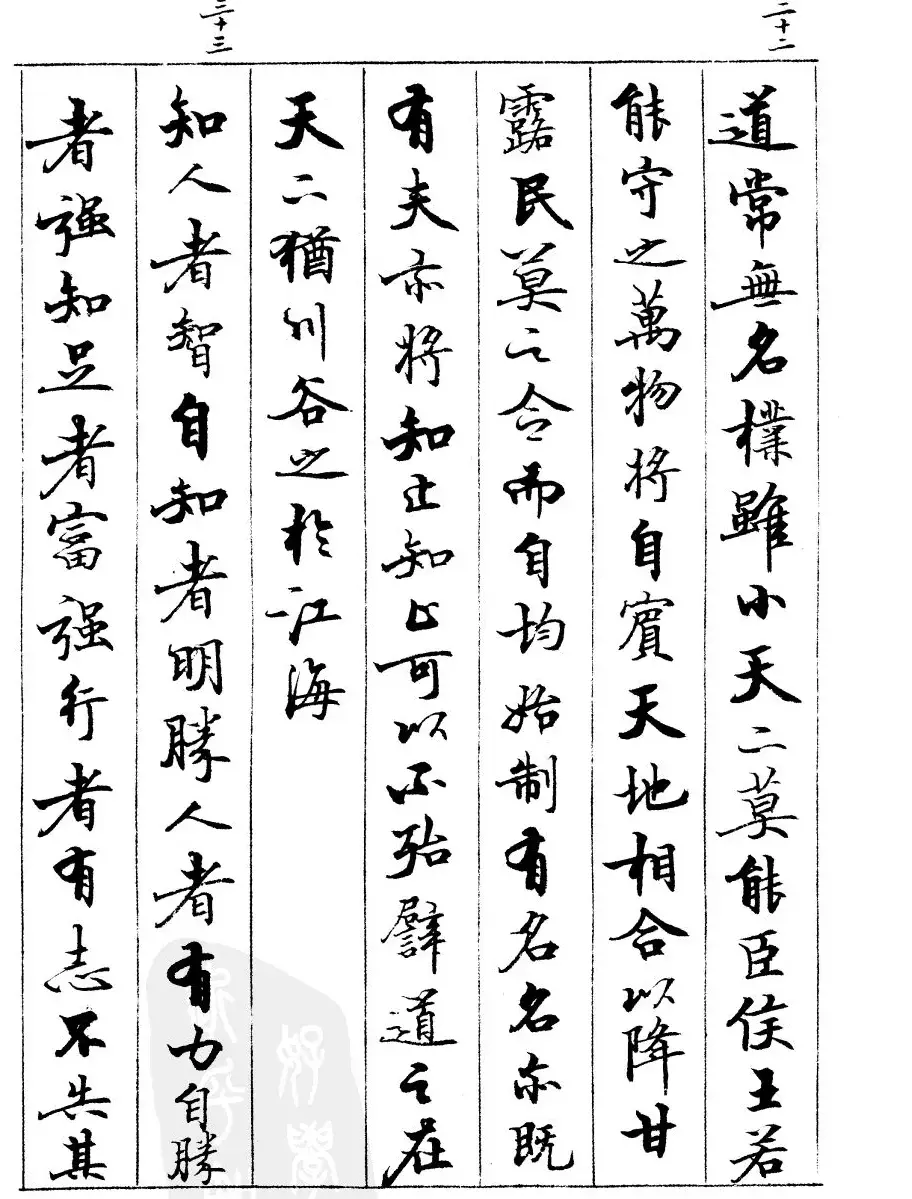 三十二
道常無名樸雖小天下莫能臣侯王若
能守之萬物將自賓天地相合以降甘
露民莫之令而自均始制有名名亦既
有夫亦將知止知止可以不殆譬道之在
天下猶川谷之於江海
三十三
知人者智自知者明勝人者有力自勝
者强知足者富强行者有志不失其